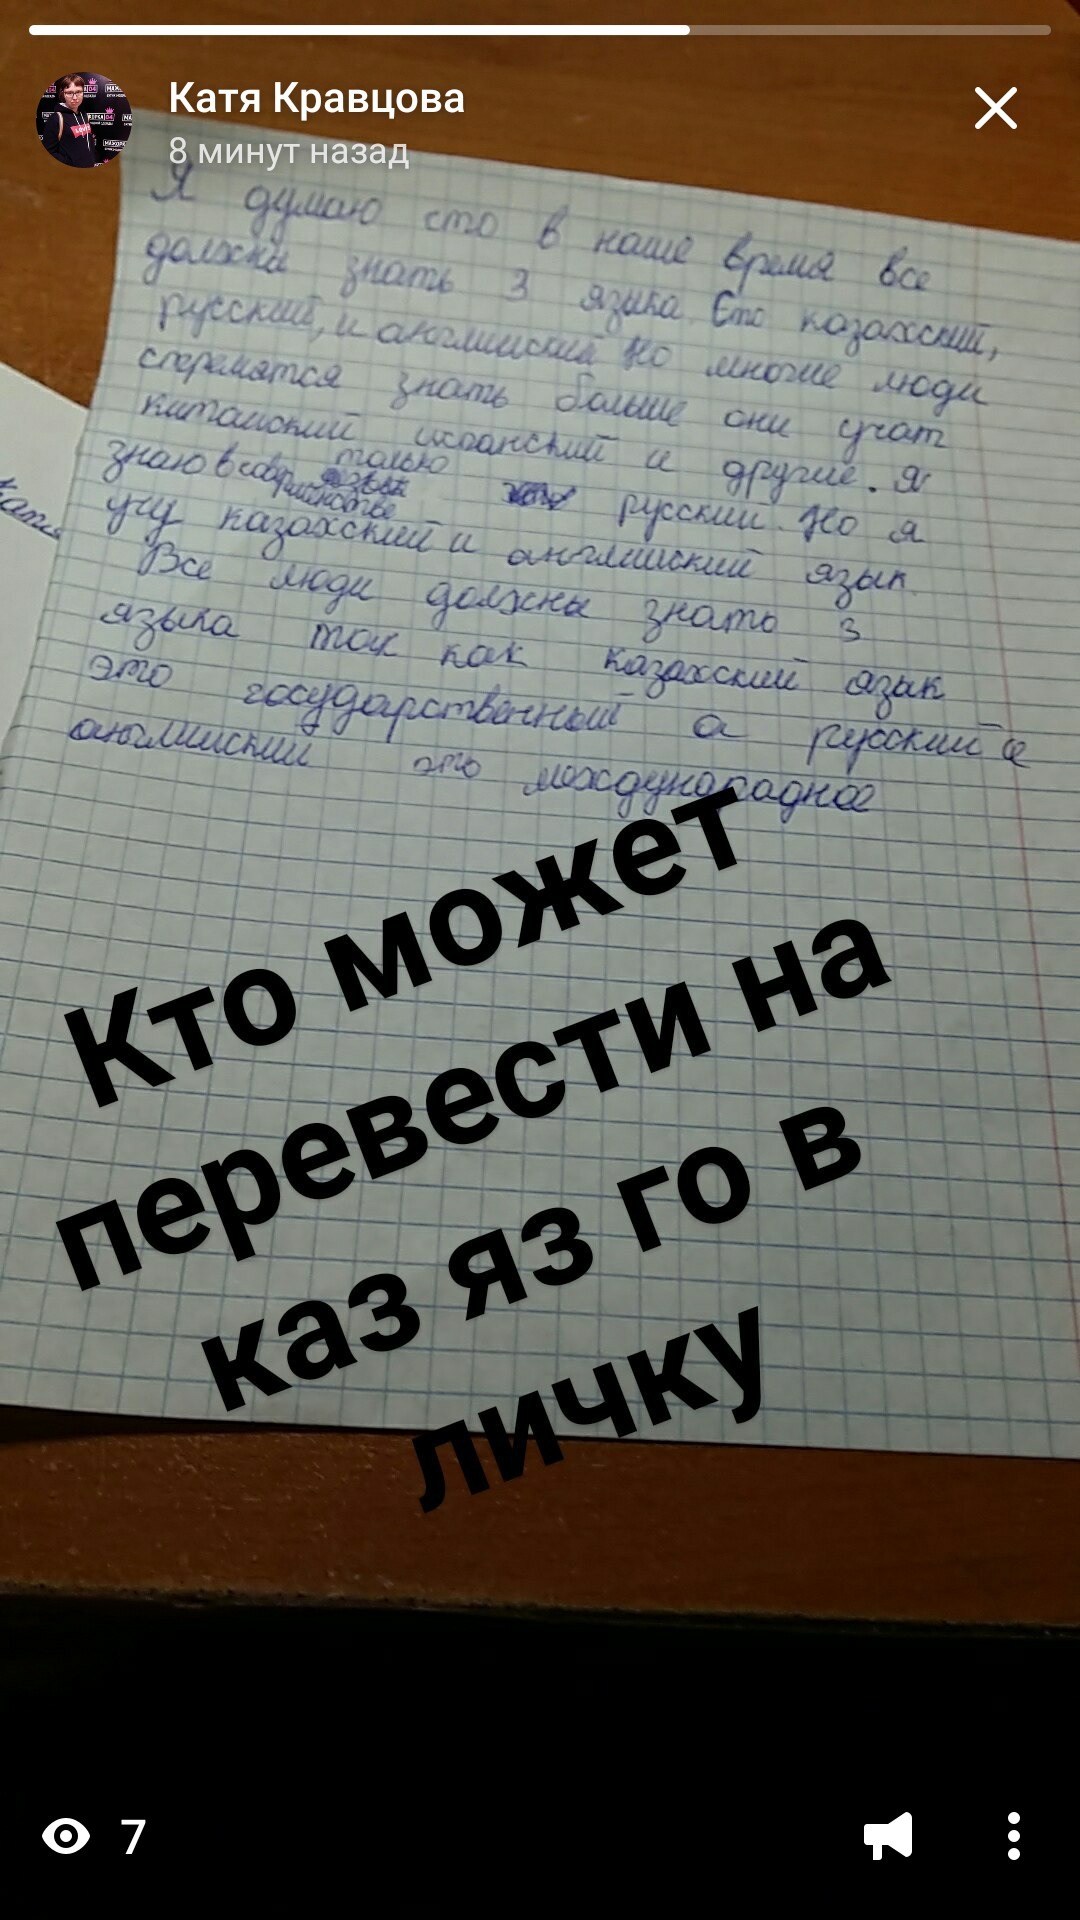 Катя Кравцова
8 минут назад
Я думаю сто в наше время все
должны знать 3 языка. Сто казахский,
русский, и английский Но многие люди
стремятся знать больше они учат
китайский испанский и другие. Я
знаю в совершенстве только русский. Но я
учу казахский и английский язык
Все люди должны знать 3
языка так как казахский язык
это государственный а русский и
английский это международное
Кто может
перевести на
каз яз го в
личку
7